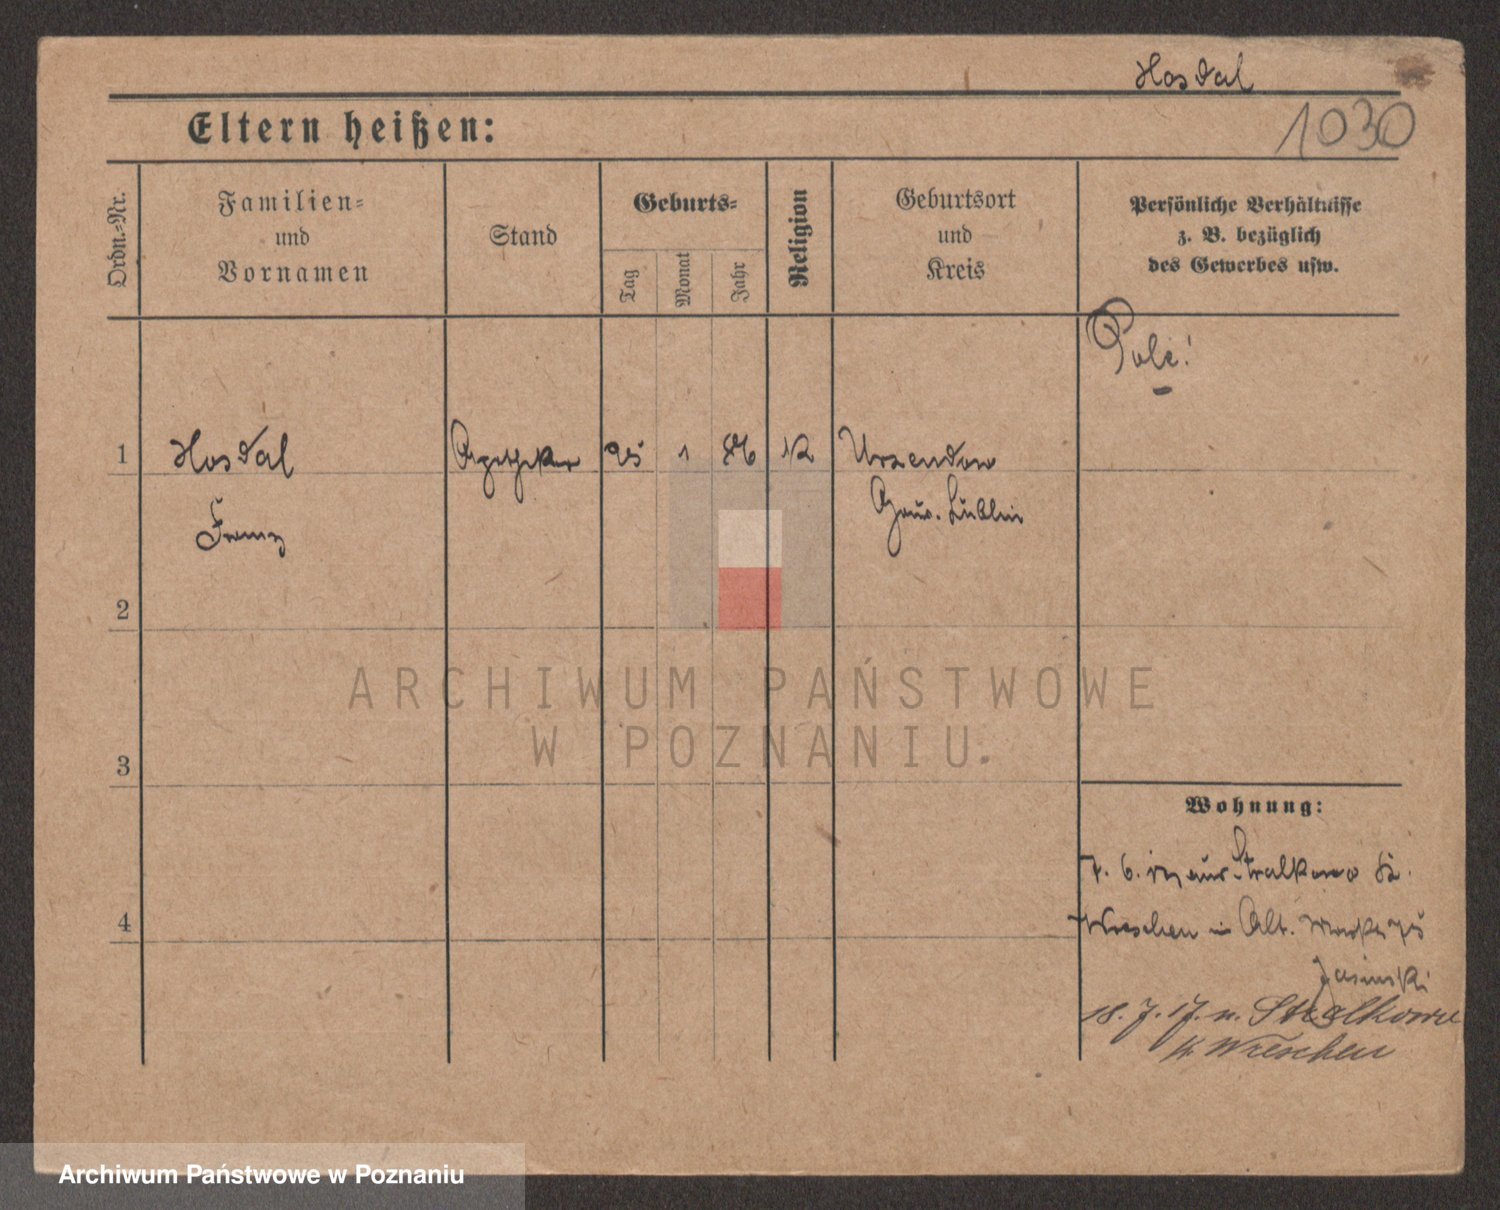 Hosdal
1030
Eltern heißen:
Ordn.=Nr.
Familien=
und
Vornamen
Stand
Geburts=
Tag
Monat
Jahr
Religion
Geburtsort
und
Kreis
Persönliche Verhältnisse
z. B. bezüglich
des Gewerbes usw.
Pole!
1 Hosdal Apotheker 25 1 86 K Urzendow
Franz Gouv. Lublin
2
3
4
Wohnung:
7. 6. 17 aus Stralkowo Kr.
Wreschen in Alt. Markt 75
Jasinski
18. 7. 17. n. Stralkowo
Kr. Wreschen
ARCHIWUM PAŃSTWOWE
W POZNANIU.
Archiwum Państwowe w Poznaniu